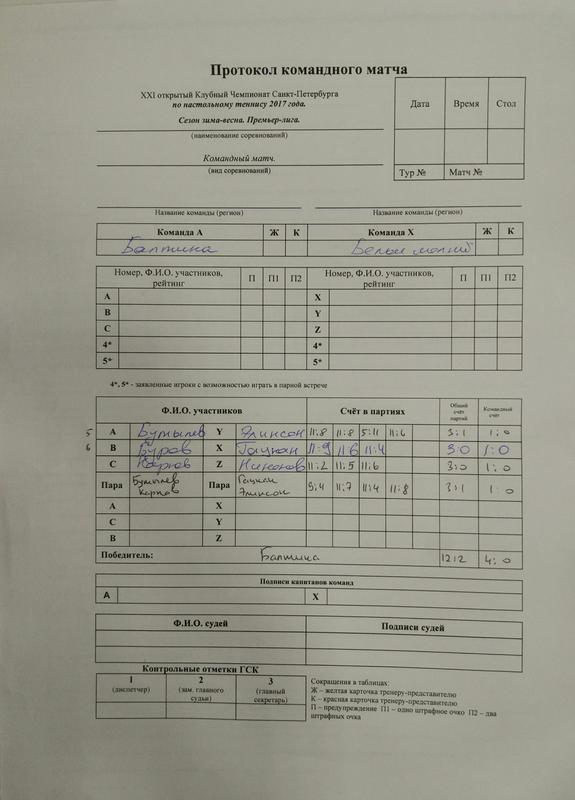 Протокол командного матча
XXI открытый Клубный Чемпионат Санкт-Петербурга
по настольному теннису 2017 года.
Сезон зима-весна. Премьер-лига.
(наименование соревнований)
Командный матч.
(вид соревнований)
Дата Время Стол
Тур № Матч №
Название команды (регион) Название команды (регион)
Команда А Ж К Команда X Ж К
Балтика Белые молнии
Номер, Ф.И.О. участников, рейтинг П П1 П2 Номер, Ф.И.О. участников, рейтинг П П1 П2
A X
B Y
C Z
4* 4*
5* 5*
4*, 5* - заявленные игроки с возможностью играть в парной встрече
Ф.И.О. участников Счёт в партиях Общий счёт партий Командный счёт
5 A Бутылев Y Элинсон 11:8 11:8 5:11 11:6 3:1 1:0
6 B Буров X 11:9 11:6 11:4 3:0 1:0
C Карпов Z Никонов 11:2 11:5 11:6 3:0 1:0
Пара Бутылев Карпов Пара Элинсон 9:4 11:7 11:4 11:8 3:1 1:0
A X
C Y
B Z
Победитель: Балтика 12:2 4:0
Подписи капитанов команд
A X
Ф.И.О. судей Подписи судей
Контрольные отметки ГСК
1 (диспетчер) 2 (зам. главного судьи) 3 (главный секретарь)
Сокращения в таблицах:
Ж – желтая карточка тренеру-представителю
К – красная карточка тренеру-представителю
П – предупреждение П1 – одно штрафное очко П2 – два
штрафных очка